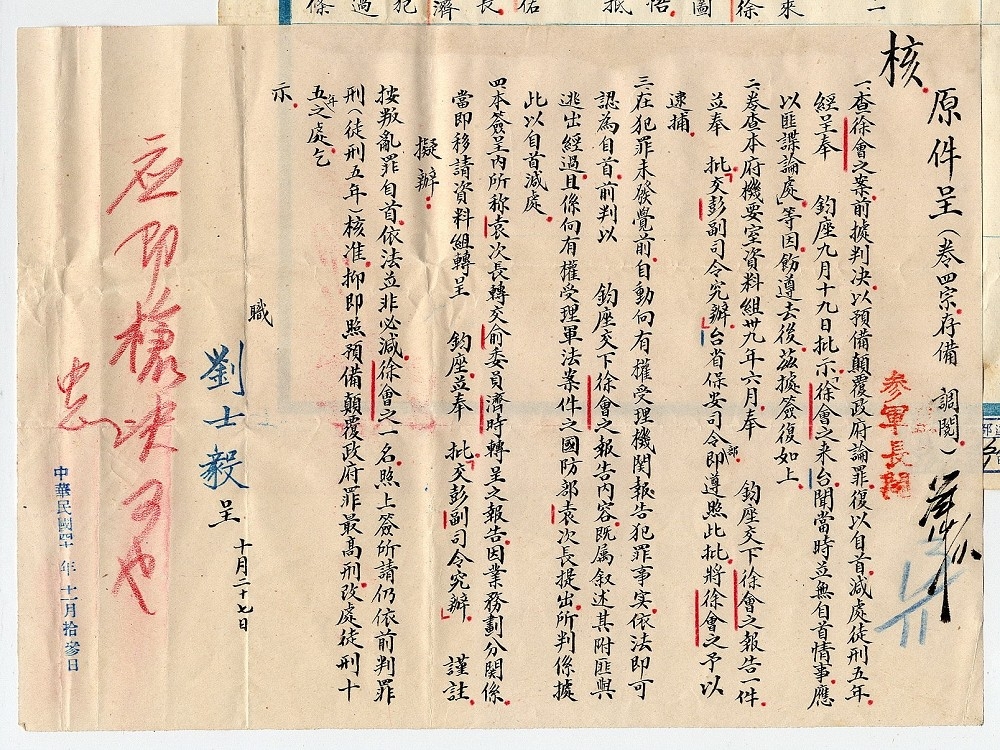 核
原件呈（卷四宗存備　調閱）
一、查徐會之案前據判決以預備顛覆政府論罪復以自首減處徒刑五年
經呈奉　鈞座九月十九日批示「徐會之來台聞當時並無自首情事應
以匪諜論處」等因飭遵去後茲據簽復如上
二、卷查本府機要室資料組卅九年六月奉　鈞座交下徐會之報告一件
並奉　批「交彭副司令究辦」台省保安司令部即遵照此批將徐會之予以
逮捕
三、在犯罪未發覺前自動向有權受理機關報告犯罪事實依法即可
認為自首前判以　鈞座交下徐會之報告內容既屬叙述其附匪與
逃出經過且係向有權受理軍法案件之國防部袁次長提出所判係據
此以自首減處
四、本簽呈內所稱袁次長轉交俞委員濟時轉呈之報告因業務劃分關係
當即移請資料組轉呈　鈞座並奉　批「交彭副司令究辦」　謹註
擬辦
按叛亂罪自首依法並非必減徐會之一名照上簽所請仍依前判罪
刑（徒刑五年）核准抑即照預備顛覆政府罪最高刑改處徒刑十
五年之處乞
示
職
劉士毅呈　十月二十七日
參軍長閱
应即槍决可也
中正
中華民國四十年十一月拾參日